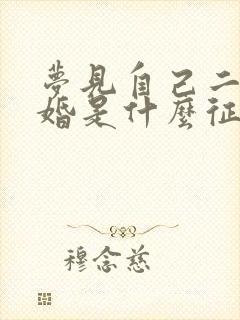 夢見自己二
婚是什麼征
穆念慈